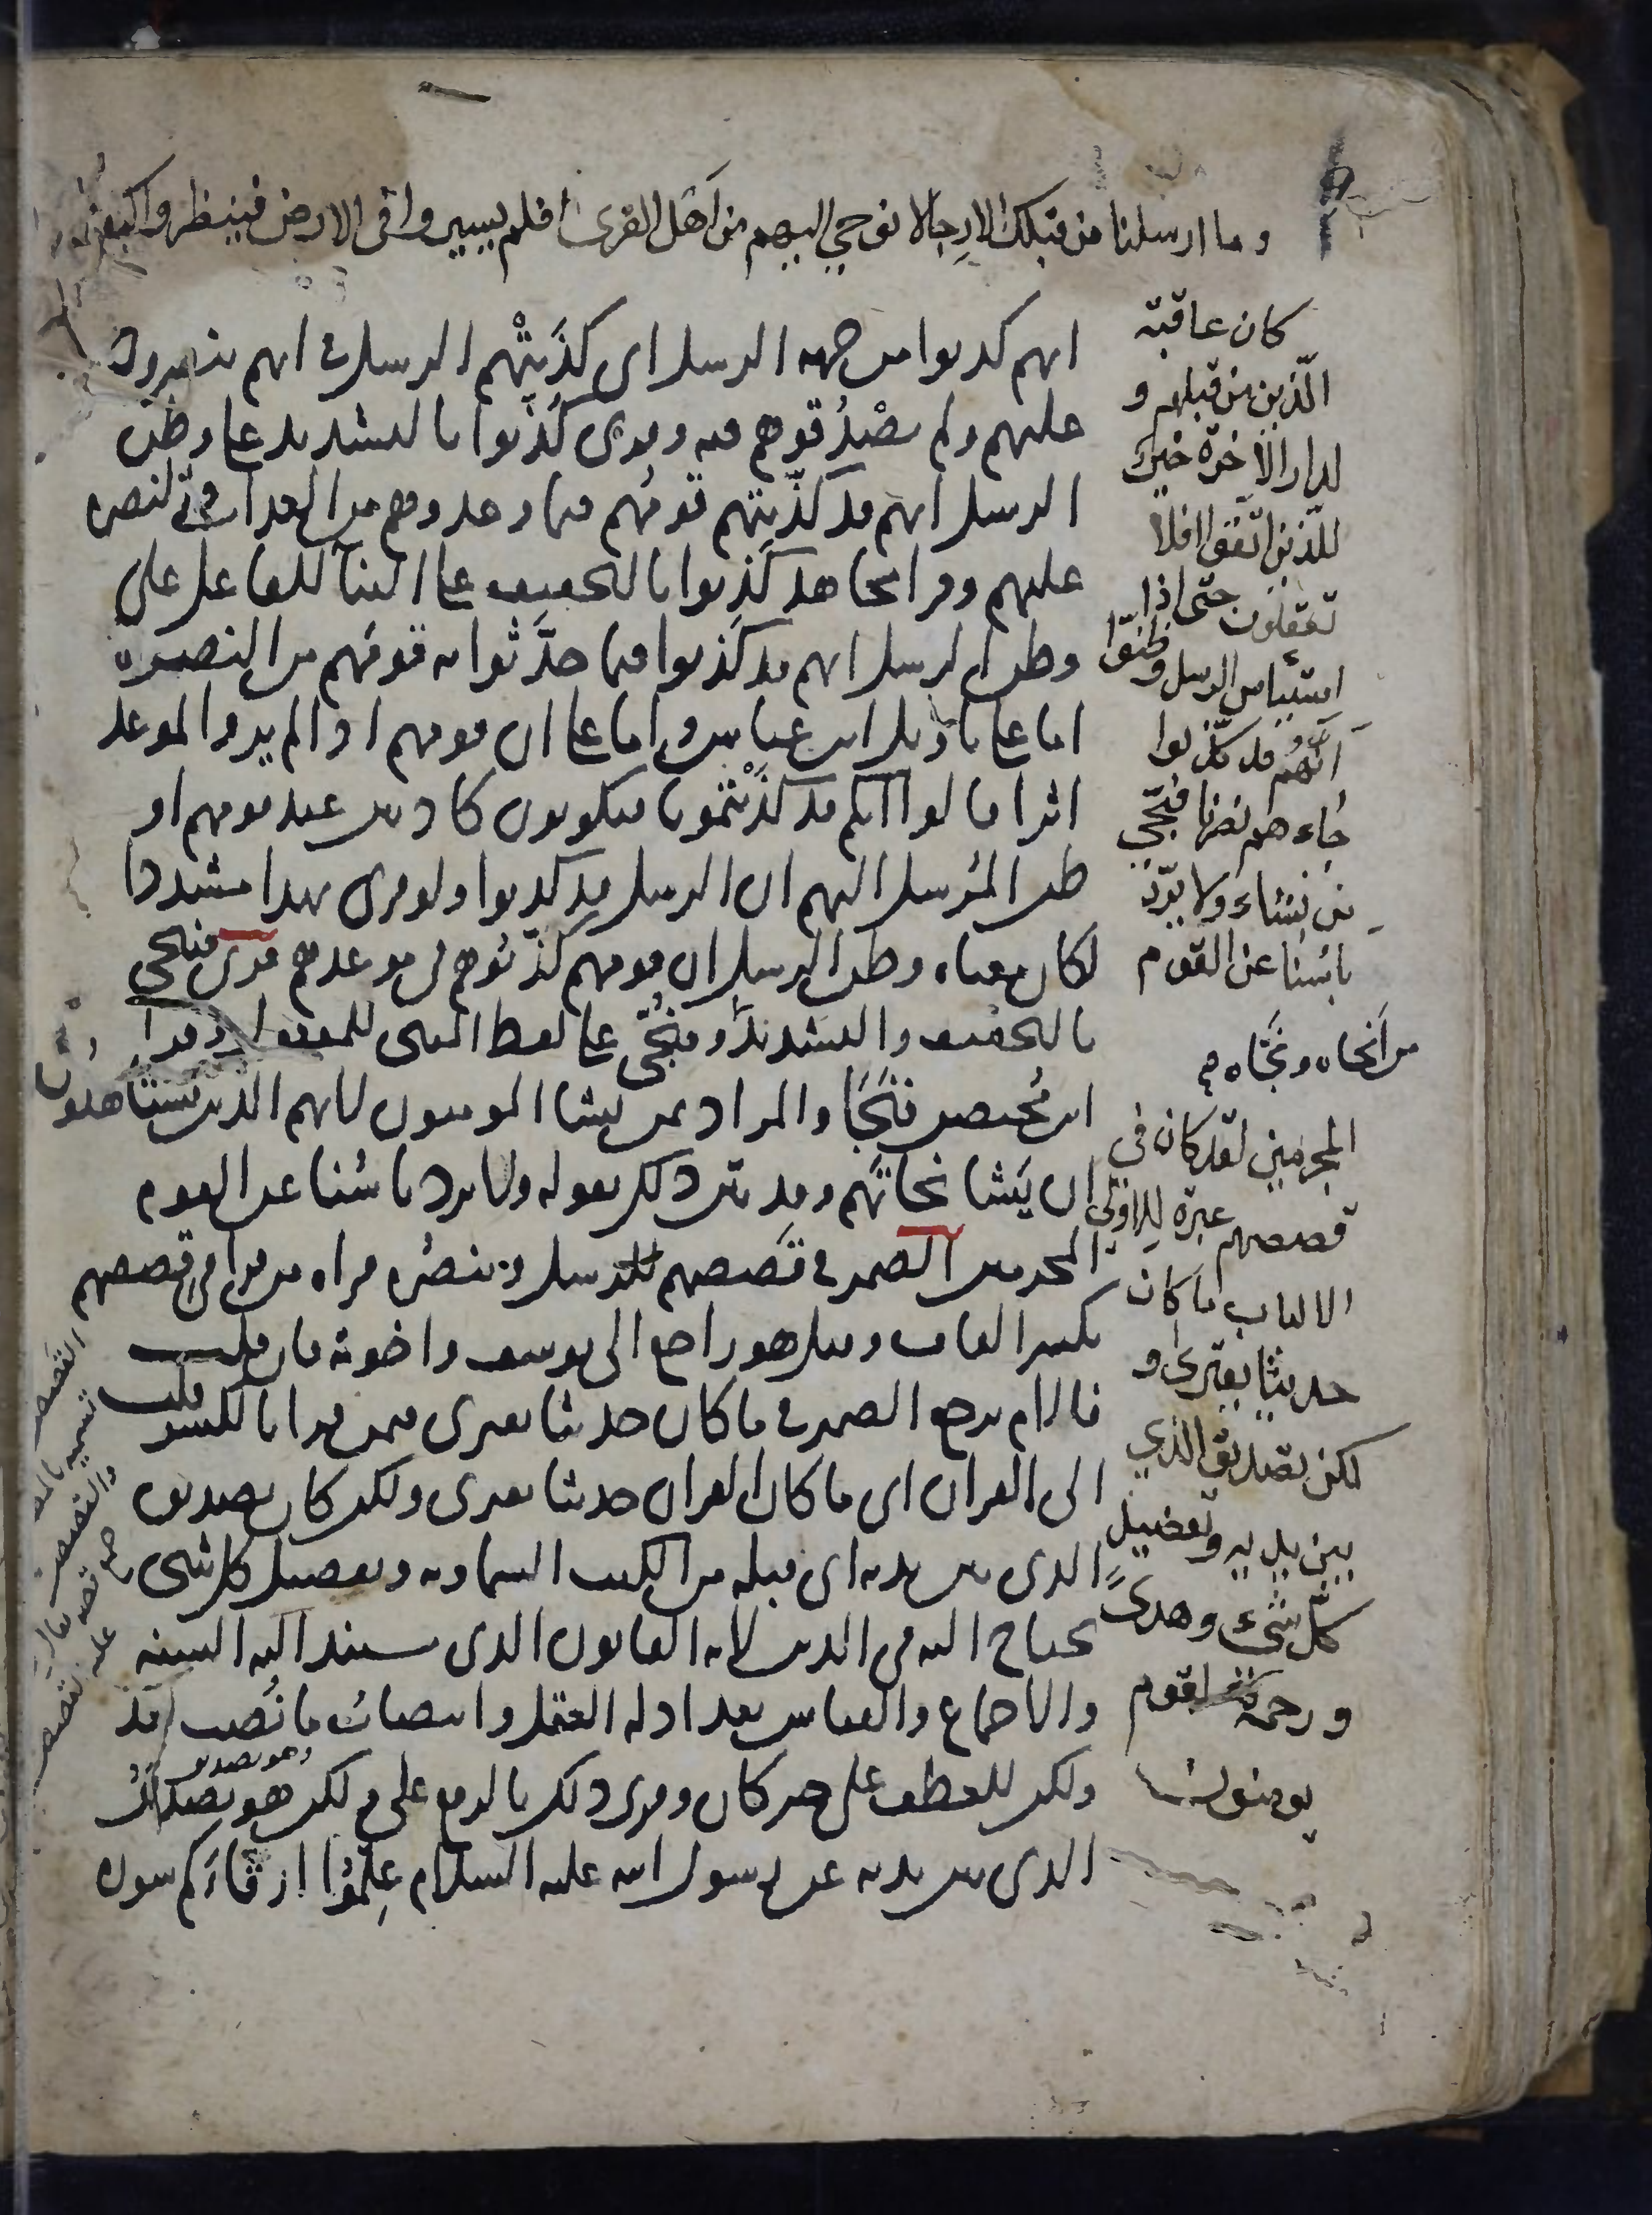 وما ارسلنا من قبلك الا رجالا نوحي اليهم من اهل القرى افلم يسيروا في الارض فينظروا كيف
كان عاقبة
الّذين من قبلهم و
لدار الآخرة خير
للّذين اتّقوا افلا
تعقلون حتى اذا
استيأس الرسل وظنّوا
أنّهم قد كذبوا
جاءهم نصرنا فنجّي
من نشاء ولا يردّ
بأسنا عن القوم
من أنجاه ونجّاه
المجرمين لقد كان في
قصصهم عبرة لاولي
الالباب ما كان
حديثا يفترى و
لكن تصديق الذي
بين يديه وتفصيل
كلّ شيء وهدىً
ورحمة لقوم
يومنون
انهم كذبوا من جهه الرسل اى كذَبَتْهم الرسل فى انهم ينصرون
عليهم ولم يصْدُقوهم فيه وقرى كُذّبوا بالتشديد على وظن
الرسل انهم قد كذّبتهم قومُهم فيما وعدوهم من العذاب والنصره
عليهم وقرا مجاهد كَذَبوا بالتخفيف على البنآ للفاعل على
وظن الرسل انهم قد كَذبوا فيما حدَّثوا به قومَهم من النصره
اما على تاويل ابن عباس واما على ان قومهم اذا لم يروا لموعد
اثرا قالوا انكم قد كذَبْتمونا فيكونون كاذبين عند قومهم او
ظن المُرسل اليهم ان الرسل قد كذبوا ولو قرى بهذا مشددا
لكان معناه وظن الرسل ان قومهم كذّبوهم فى موعدهم قرى فننجى
بالتخفيف والتشديد وفنُجّى على لفظ الماضى للمفعول وقرا
ابن مُحيصن فنَجَا والمراد بمن نشا المومنون لانهم الذين يستاهلون
ان يَشا نجاتَهم وقد بيّن ذلك بقوله ولا يرد باسُنا عن القوم
المجرمين الضمير فى قَصصهم للرسل وينصرُه قراه من قرا فى قِصصهم
بكسر القاف وقيل هو راجع الى يوسف واخوته فان قلت
فالام يرجع الضمير فى ما كان حديثا يفترى فيمن قرا بالكسر قلت
الى القران اى ما كان القران حديثا يفترى ولكن كان تصديق
الذى بين يديه اى قبله من الكتب السماويه وتفصيل كل شى
يحتاج اليه فى الدين لانه القانون الذى يستند اليه السنه
والاجماع والقياس بعد ادله العقل وانتصابُ ما نُصب بعد
ولكن للعطف على خبر كان وقرى ذلك بالرفع على ولكن هو تصديقُ
الذى بين يديه عن رسول الله عليه السلام عَلِّمُوا ارقّاءَكم سوره